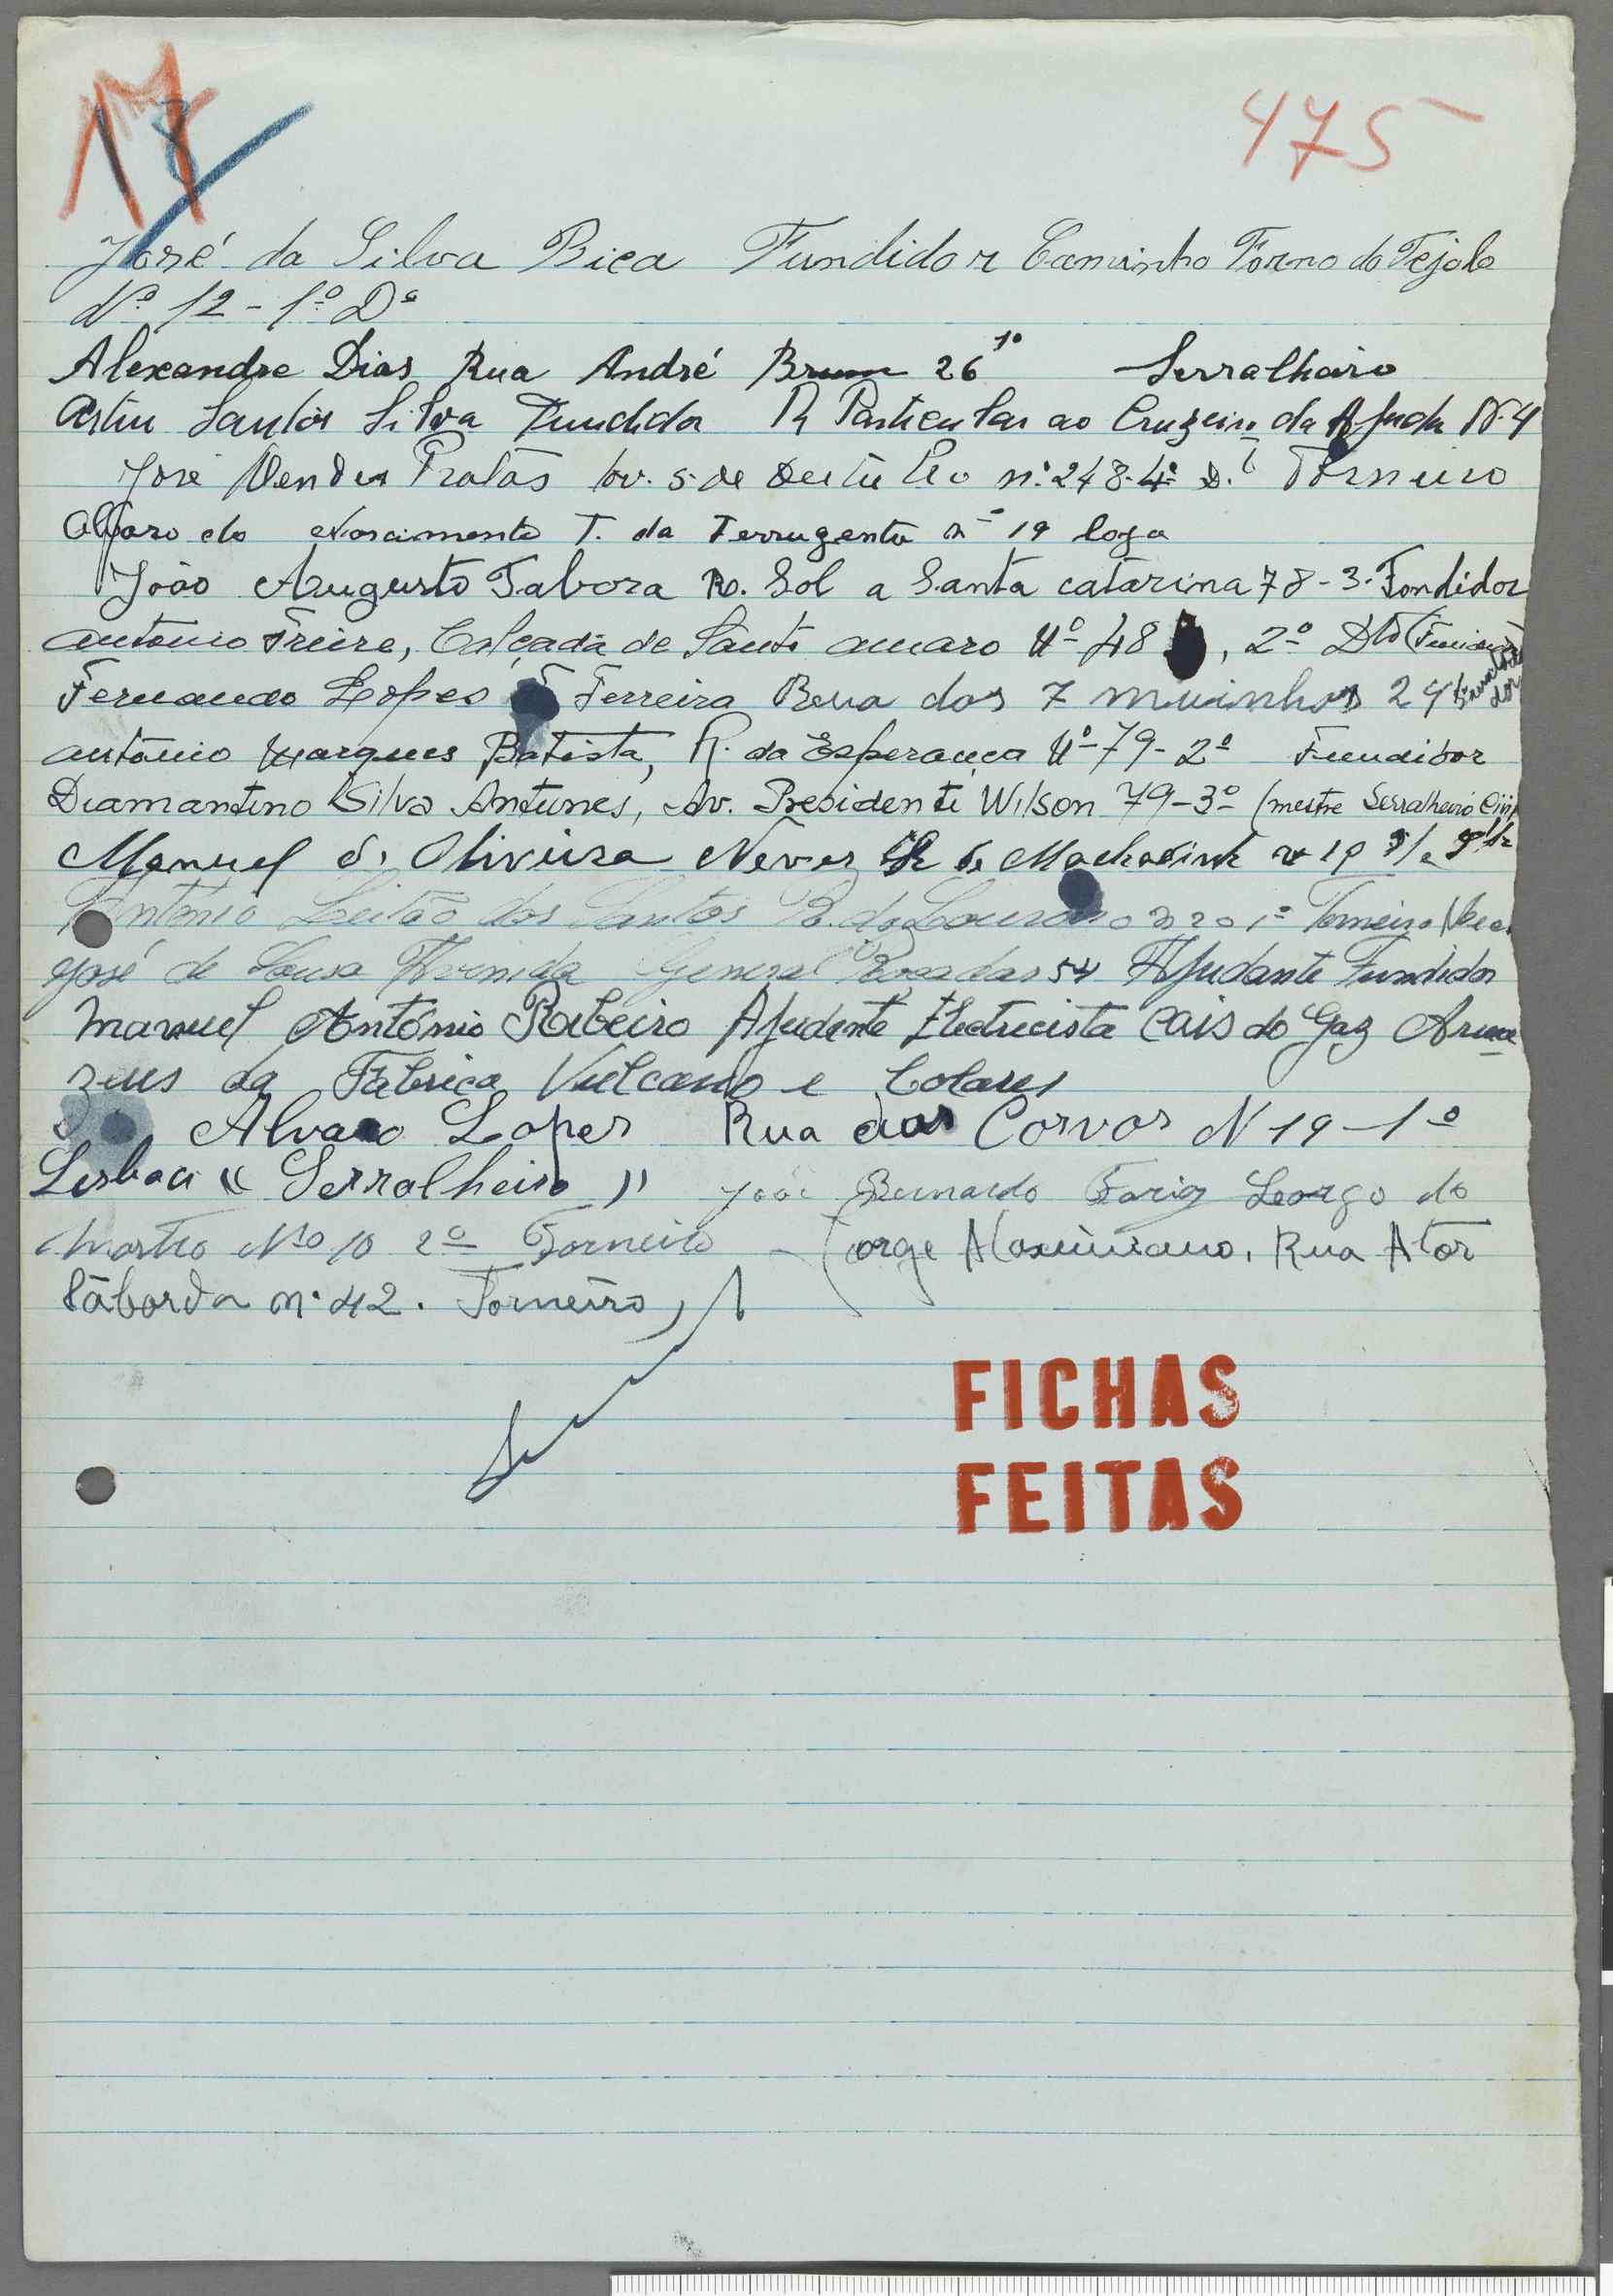 17
475
José da Silva Bica Fundidor Caminho Forno do Tejolo
Nº 12 - 1º Dº
Alexandre Dias Rua André Brun 26 1º Serralheiro
Santos Silva R Particular ao Cruzeiro da Ajuda N. 4
José Mendes Pratas Av. 5 de Outubro nº 248-4º D.t Torneiro
Alvaro do Nascimento T. da Ferrugenta nº 19 loga
João Augusto Tabora R. Sol a Santa catarina 78-3. Fondidor
António Freire, Calçada de Santo amaro Nº 48, 2º Dto
Fernando Lopes Ferreira Rua dos 7 muinhos 24
António Marques Batista, R. da Esperança Nº 79-2º Fundidor
Diamantino Silva Antunes, Av. Presidente Wilson 79-3º (mestre Serralheiro
Manuel d' Oliveira Neves
António Leitão dos Santos 20 1º Torneiro
José de Sousa Avenida General Roçadas 54 Ajudante Fundidor
Manuel António Ribeiro Ajudante Electricista Cais do Gaz Arma
zens da Fabrica Vulcano e Colares
Alvaro Lopes Rua dos Corvos N 19-1º
Lisboa " Serralheiro " João Bernardo Faria Leargo do
Mastro Nº 10 2º Torneiro - Jorge Maximiano, Rua Ator
Táborda nº 42. Torneiro,
FICHAS
FEITAS